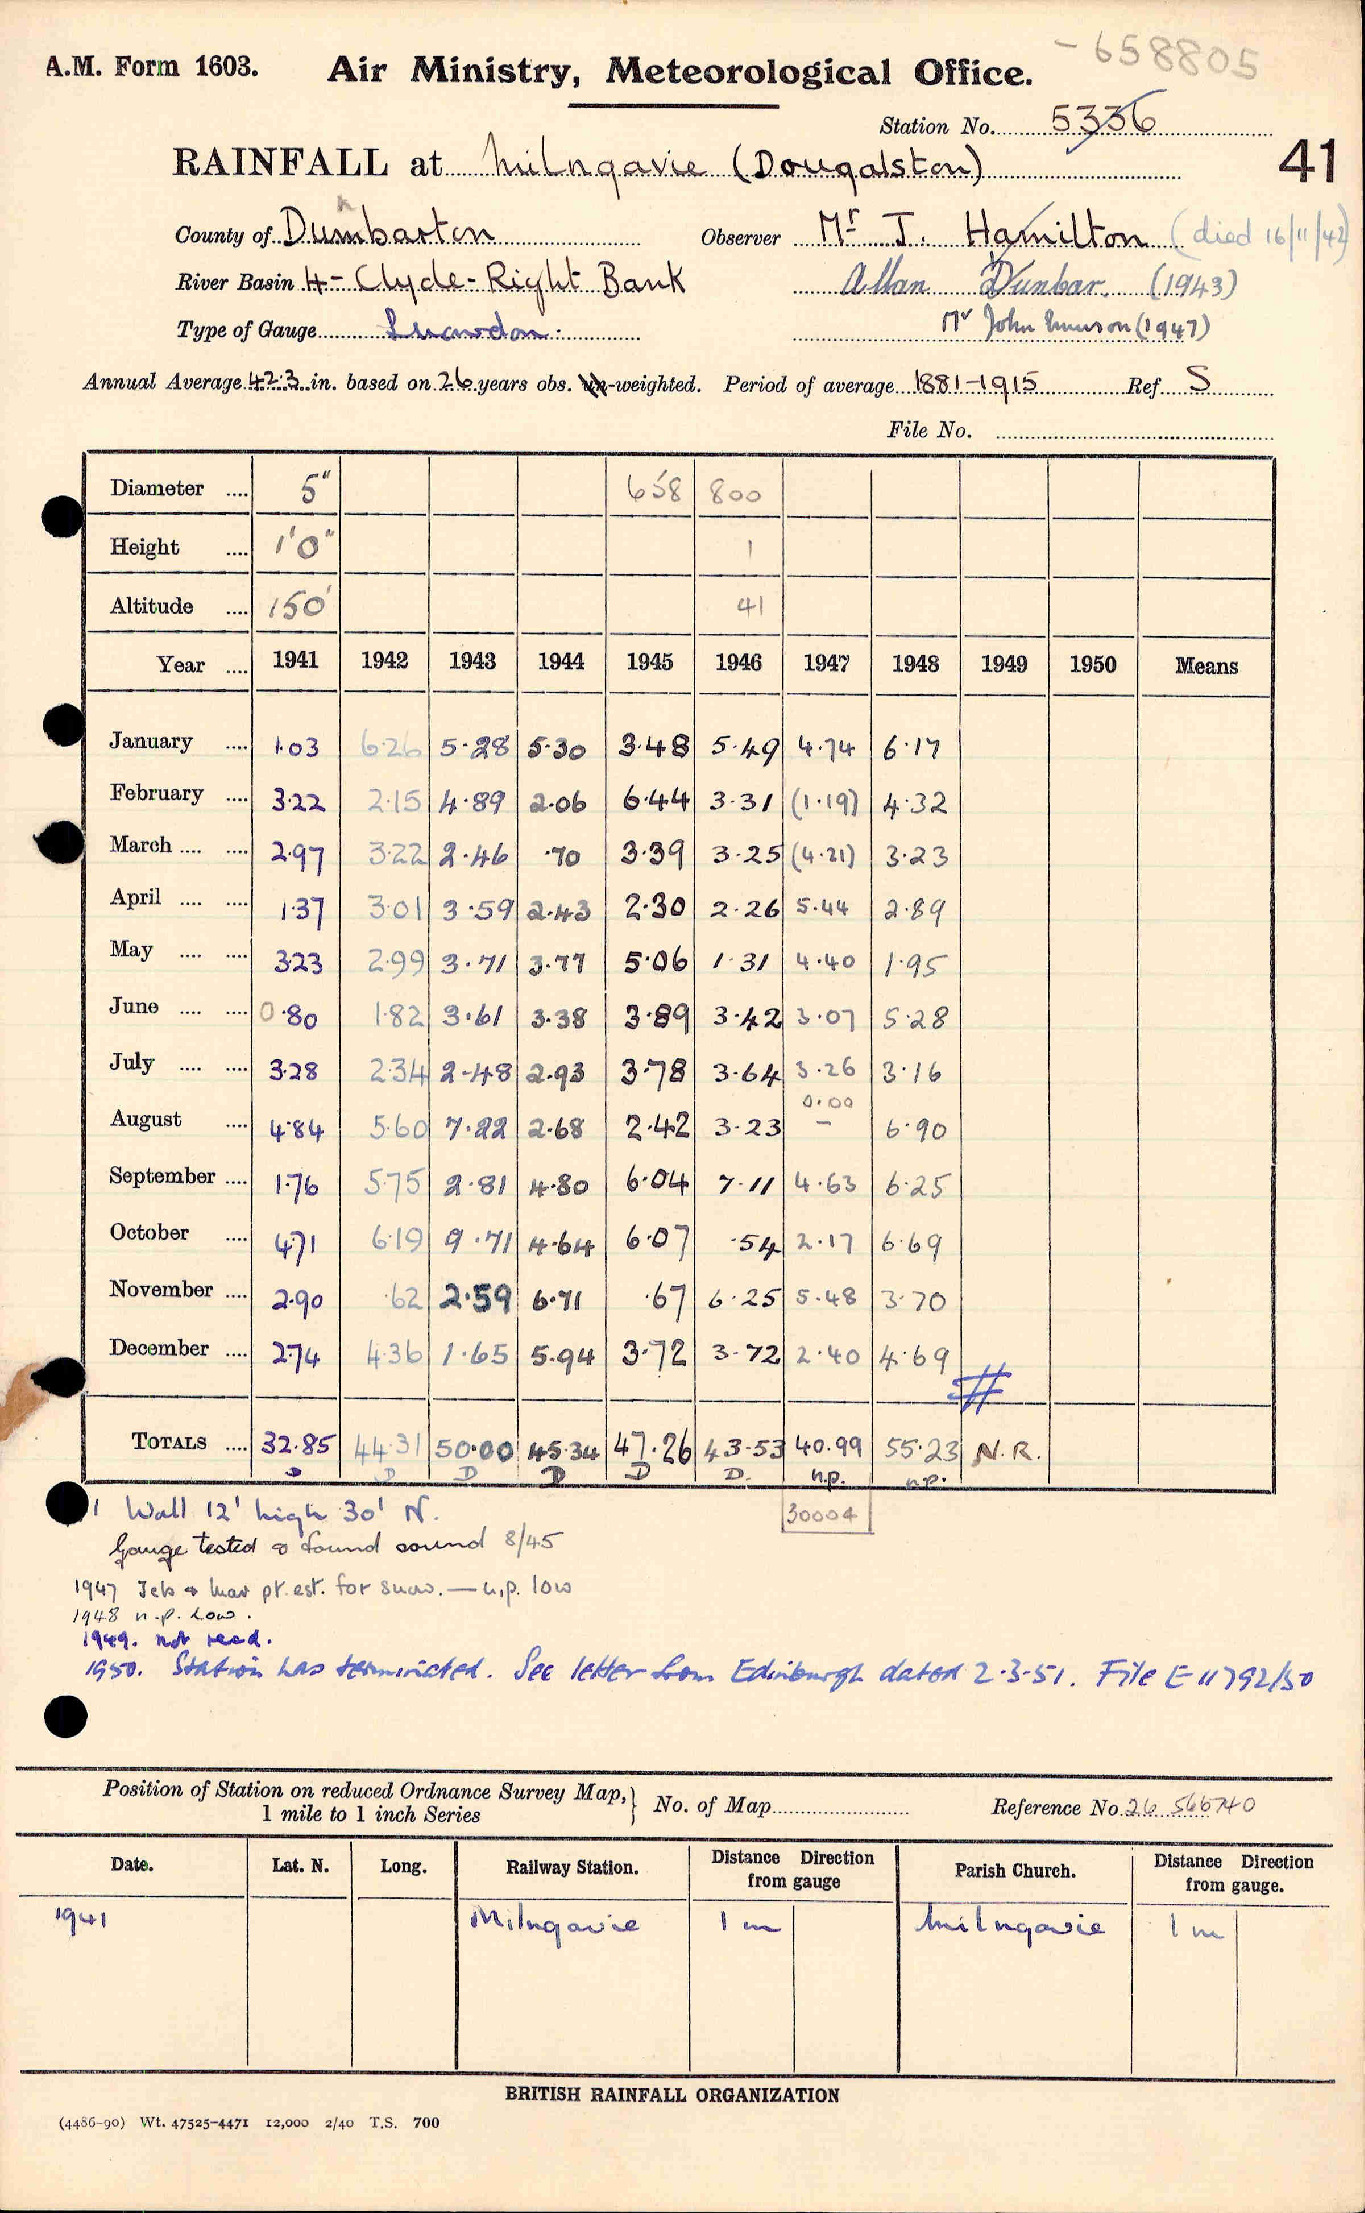 -658805
A.M. Form 1603. Air Ministry, Meteorological Office.
Station No. 5336
RAINFALL at Milngavie (Dougalston) 41
County of Dumbarton Observer Mr J. Hamilton (died 16/11/42)
River Basin 4- Clyde-Right Bank Allan Dunbar. (1943)
Type of Gauge Snowdon. Mr John (1947)
Annual Average 42.3 in. based on 26 years obs. -weighted. Period of average 1881-1915 Ref. S
File No.
Diameter .... 5" 658 800
Height .... 1'0" 1
Altitude .... 150' 41
Year .... 1941 1942 1943 1944 1945 1946 1947 1948 1949 1950 Means
January .... 1.03 6.26 5.28 5.30 3.48 5.49 4.74 6.17
February .... 3.22 2.15 4.89 2.06 6.44 3.31 (1.19) 4.32
March .... .... 2.97 3.22 2.46 .70 3.39 3.25 (4.21) 3.23
April .... .... 1.37 3.01 3.59 2.43 2.30 2.26 5.44 2.89
May .... .... 3.23 2.99 3.71 3.77 5.06 1.31 4.40 1.95
June .... .... 0.80 1.82 3.61 3.38 3.89 3.42 3.07 5.28
July .... .... 3.28 2.34 2.48 2.93 3.78 3.64 3.26 3.16
0.00
August .... 4.84 5.60 7.22 2.68 2.42 3.23 - 6.90
September .... 1.76 5.75 2.81 4.80 6.04 7.11 4.63 6.25
October .... 4.71 6.19 9.71 4.64 6.07 .54 2.17 6.69
November .... 2.90 .62 2.59 6.71 .67 6.25 5.48 3.70
December .... 2.74 4.36 1.65 5.94 3.72 3.72 2.40 4.69
TOTALS .... 32.85 44.31 50.00 45.34 47.26 43.53 40.99 55.23 N.R.
D D D D D D. n.p. n.p.
1 Wall 12' high 30' N. 30004
Gauge tested & found sound 8/45
1947 Feb & Mar pt. est. for snow. — n.p. low
1948 n.p. low.
1949. not read.
1950. Station has terminated. See letter from Edinburgh dated 2.3.51. File E 11792/50
Position of Station on reduced Ordnance Survey Map,} No. of Map Reference No. 26 566740
1 mile to 1 inch Series
Date. Lat. N. Long. Railway Station. Distance Direction from gauge Parish Church. Distance Direction from gauge.
1941 Milngavie 1 m Milngavie 1 m
BRITISH RAINFALL ORGANIZATION
(4486-90) Wt. 47525-4471 12,000 2/40 T.S. 700